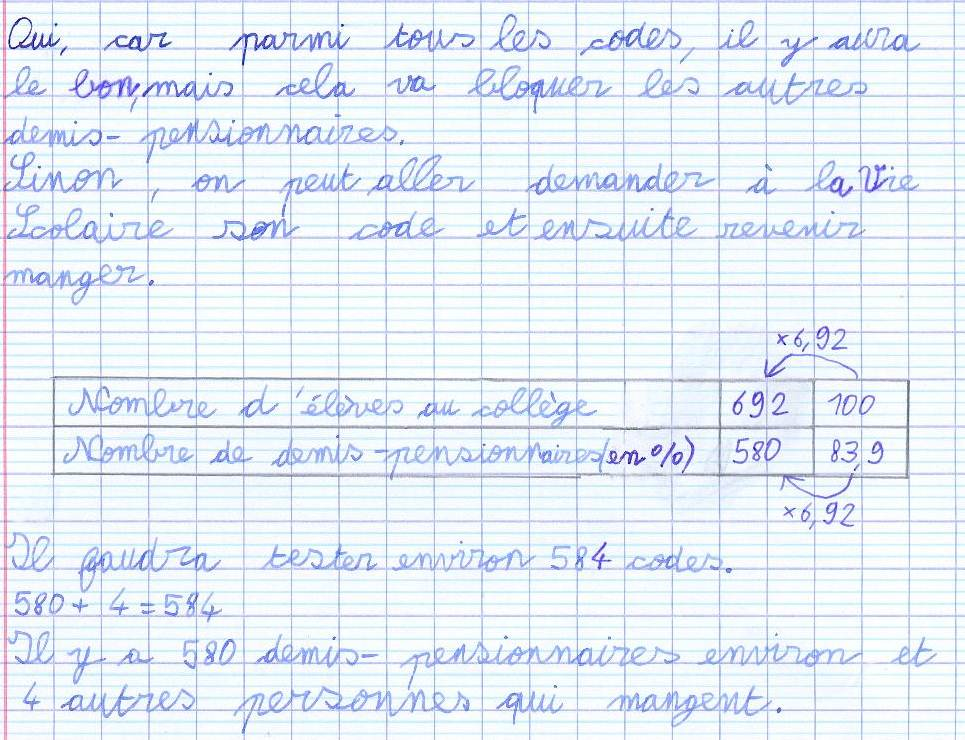 Oui, car parmi tous les codes, il y aura
le bon, mais cela va bloquer les autres
demis-pensionnaires.
Sinon, on peut aller demander à la Vie
Scolaire son code et ensuite revenir
manger.
×6,92
Nombre d'élèves au collège 692 100
Nombre de demis-pensionnaires (en %) 580 83,9
×6,92
Il faudra tester environ 584 codes.
580 + 4 = 584
Il y a 580 demis-pensionnaires environ et
4 autres personnes qui mangent.